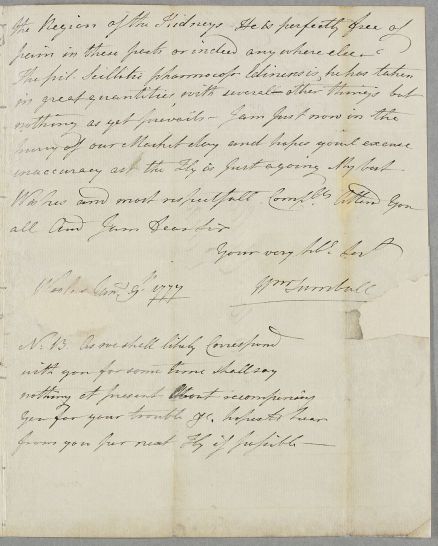 the Region of the Kidneys He is perfectly free of
pain in these parts or indeed any where else
The pil. Scillitic pharmacop. Edinensis, he has taken
in great quantities with several other things but
nothing as yet prevails - I am Just now in the
hurry of our Market day and hopes youl excuse
inaccuracy as the Fly is Just a going My best
Wishes and most respectfull Compts. Attend you
all And I am Dear Sir
Your very hble Servt
9th 1777
Wm Turnbull
N. B. As we shall likely Correspond
with you for some time shall say
nothing at present About recompensing
you for your trouble &c. hopes to hear
from you per next Fly if possible -